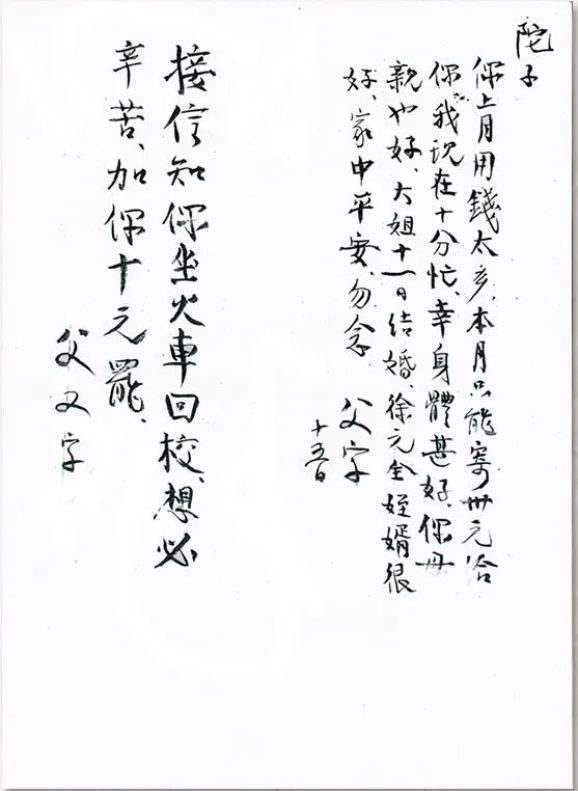 陀子
你上月用錢太多、本月只能寄卅元洽
你。我現在十分忙、幸身體甚好、你母
親也好、大姐十一日結婚、徐元全姪婿很
好、家中平安、勿念
父字
十五日
接信知你坐火車回校、想必
辛苦、加你十元罷、
父又字